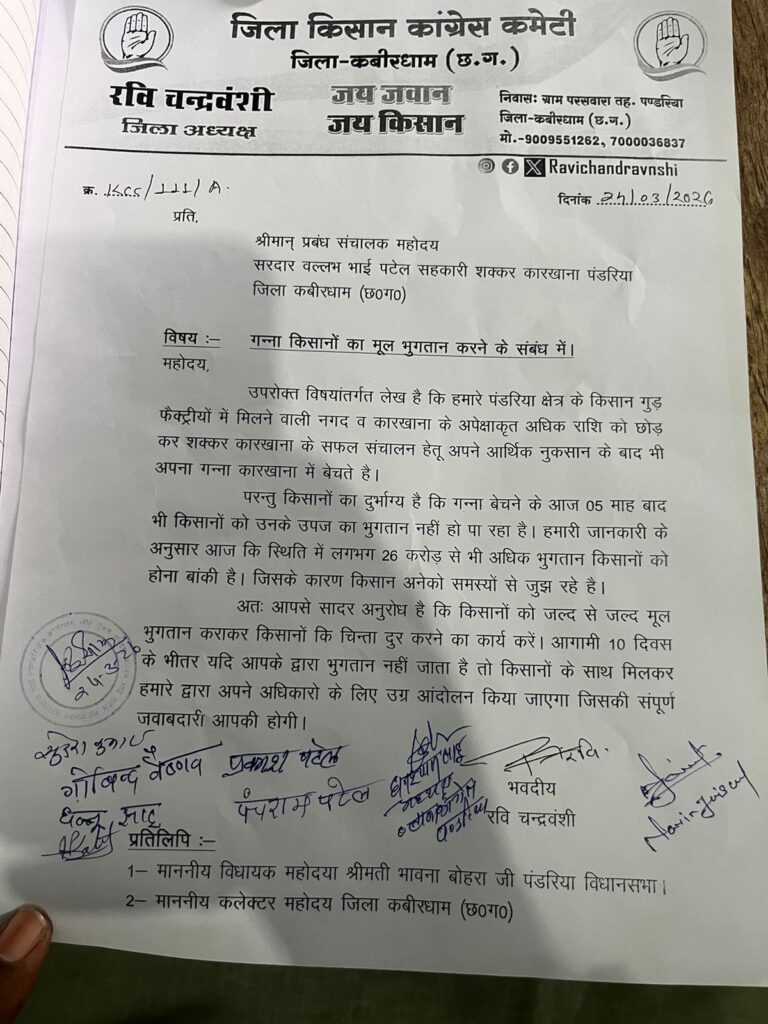 जिला किसान कांग्रेस कमेटी
जिला-कबीरधाम (छ.ग.)
रवि चन्द्रवंशी
जिला अध्यक्ष
जय जवान
जय किसान
निवासः ग्राम परसवारा तह. पण्डरिया
जिला-कबीरधाम (छ.ग.)
मो.-9009551262, 7000036837
Ravichandravnshi
क्र. KCC/111/A.
दिनांक 24/03/2026
प्रति,
श्रीमान् प्रबंध संचालक महोदय
सरदार वल्लभ भाई पटेल सहकारी शक्कर कारखाना पंडरिया
जिला कबीरधाम (छ0ग0)
विषय :– गन्ना किसानों का मूल भुगतान करने के संबंध में।
महोदय,
उपरोक्त विषयांतर्गत लेख है कि हमारे पंडरिया क्षेत्र के किसान गुड़
फैक्ट्रीयों में मिलने वाली नगद व कारखाना के अपेक्षाकृत अधिक राशि को छोड़
कर शक्कर कारखाना के सफल संचालन हेतू अपने आर्थिक नुकसान के बाद भी
अपना गन्ना कारखाना में बेचते है।
परन्तु किसानों का दुर्भाग्य है कि गन्ना बेचने के आज 05 माह बाद
भी किसानों को उनके उपज का भुगतान नहीं हो पा रहा है। हमारी जानकारी के
अनुसार आज कि स्थिति में लगभग 26 करोड़ से भी अधिक भुगतान किसानों को
होना बांकी है। जिसके कारण किसान अनेको समस्यों से जुझ रहे है।
अतः आपसे सादर अनुरोध है कि किसानों को जल्द से जल्द मूल
भुगतान कराकर किसानों कि चिन्ता दुर करने का कार्य करें। आगामी 10 दिवस
के भीतर यदि आपके द्वारा भुगतान नहीं जाता है तो किसानों के साथ मिलकर
हमारे द्वारा अपने अधिकारो के लिए उग्र आंदोलन किया जाएगा जिसकी संपूर्ण
जवाबदारी आपकी होगी।
गोबिन्द वैष्णव प्रकाश पटेल
पंचराम पटेल
भवदीय
रवि चन्द्रवंशी
प्रतिलिपि :–
1– माननीय विधायक महोदया श्रीमती भावना बोहरा जी पंडरिया विधानसभा।
2– माननीय कलेक्टर महोदय जिला कबीरधाम (छ0ग0)